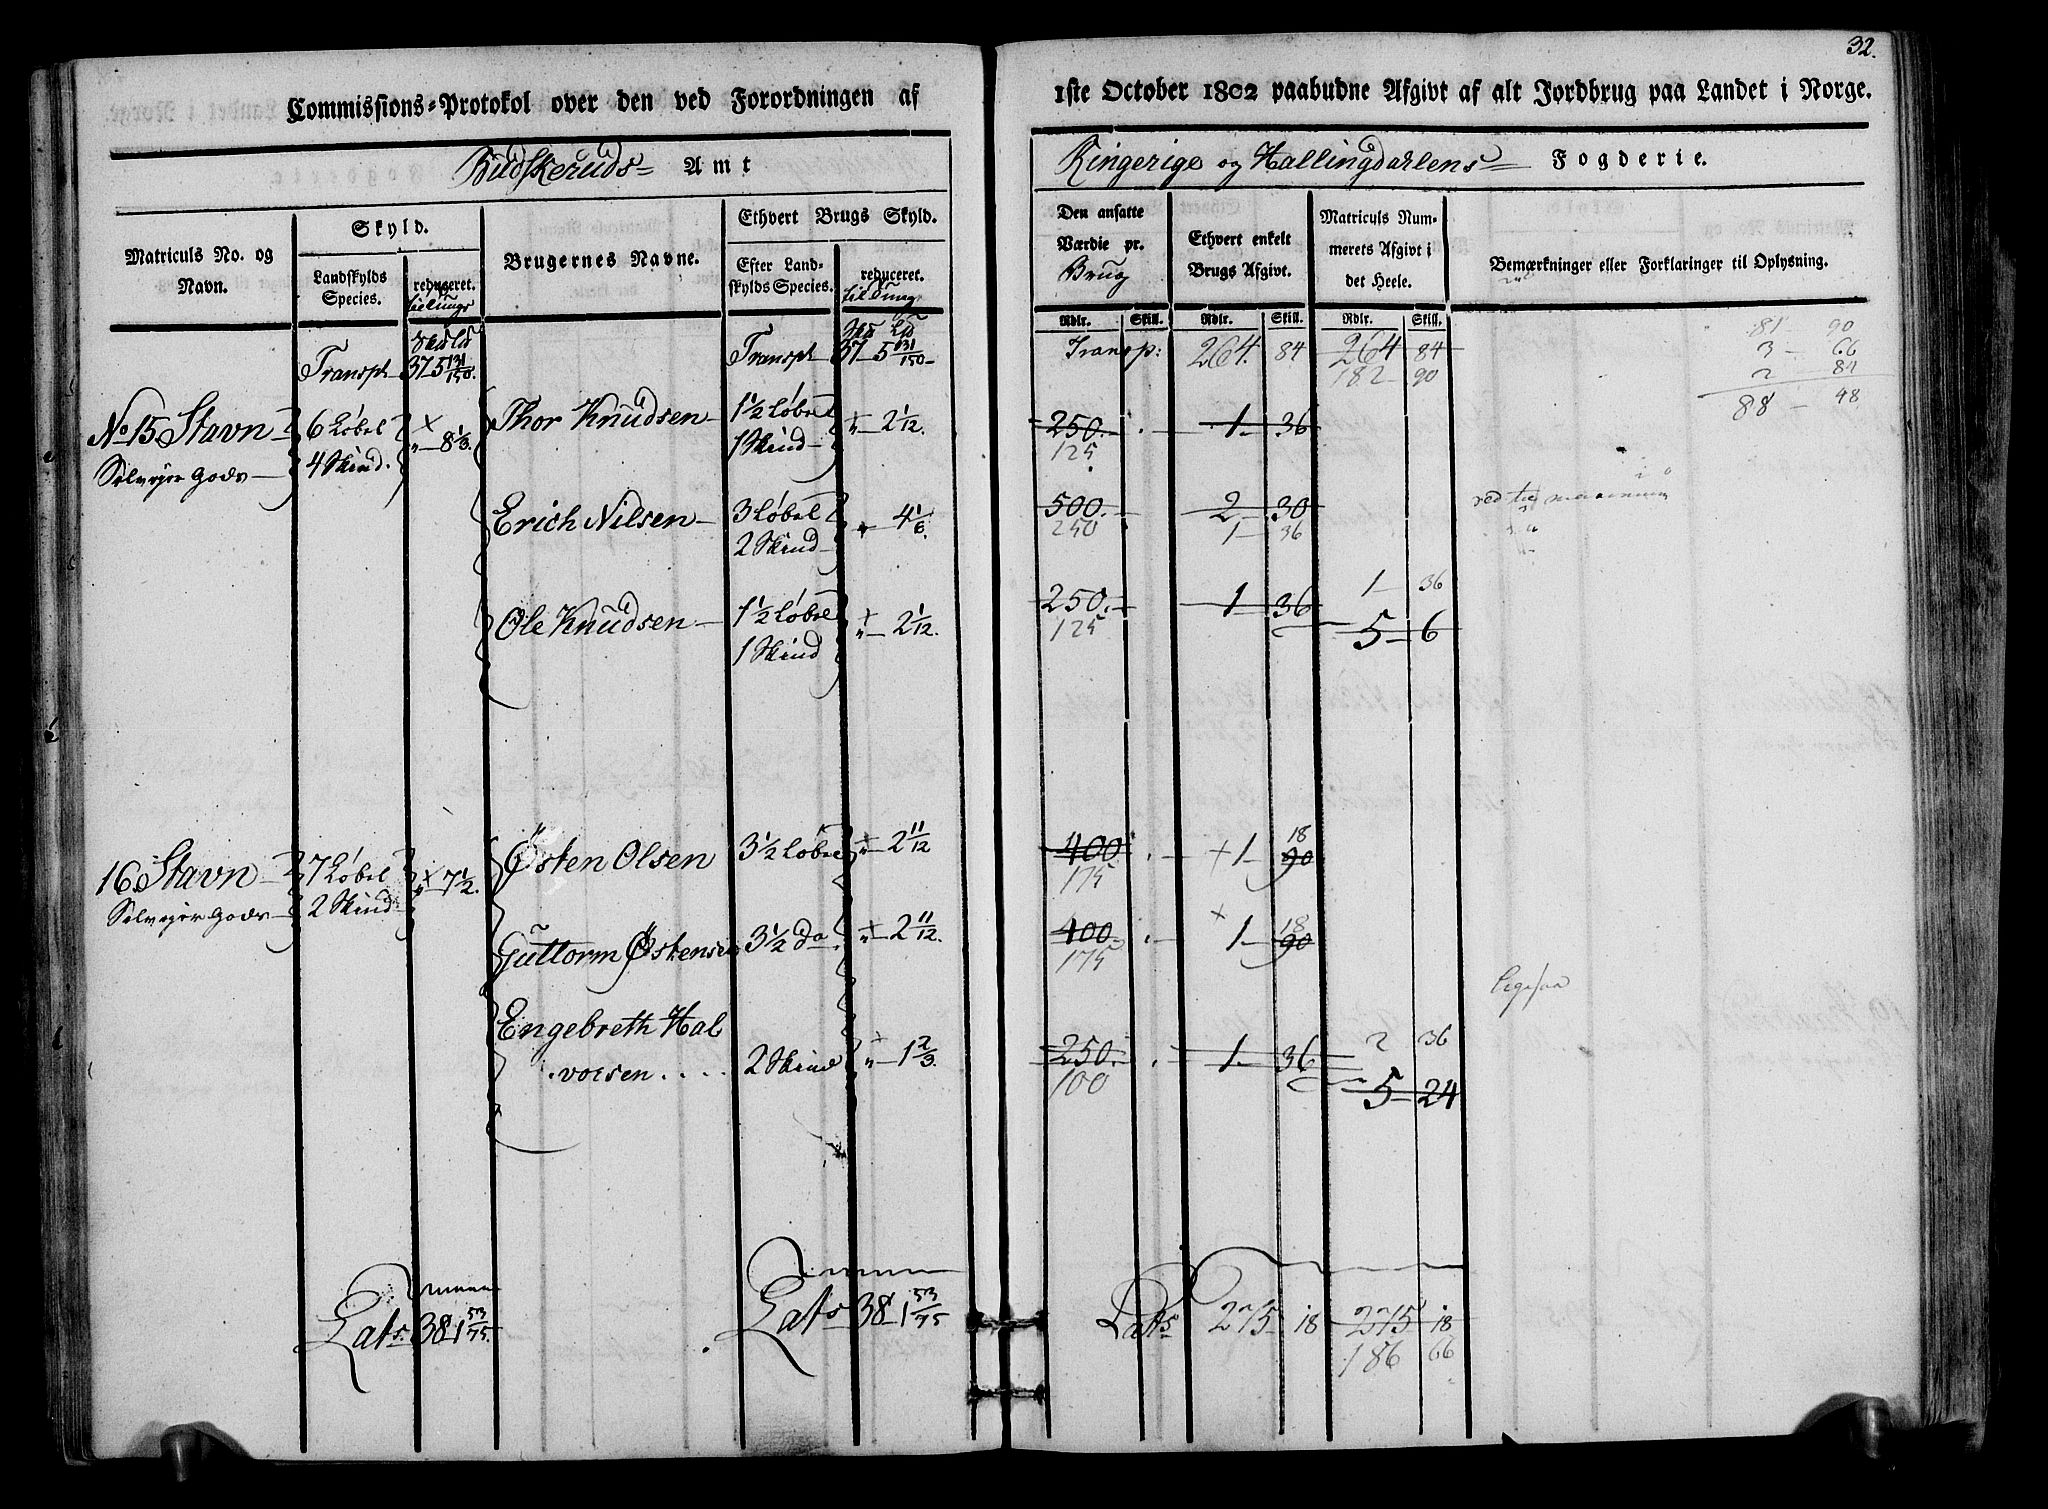 32.
Commissions-Protokol over den ved Forordningen af
1ste October 1802 paabudne Afgivt af alt Jordbrug paa Landet i Norge.
Budskeruds Amt
Ringerige og Hallingdahlens Fogderie.
Matriculs No. og Navn.
Skyld.
Landskylds Species.
reduceret.
Brugernes Navne.
Ethvert Brugs Skyld.
Efter Landskylds Species.
reduceret.
Den ansatte Værdie pr. Brug
Ethvert enkelt Brugs Afgivt.
Matriculs Nummerets Afgivt i det Heele.
Bemærkninger eller Forklaringer til Oplysning.
Rdlr. Skill. Rdlr. Skill. Rdlr. Skill.
Transpt 37 5 131/150. Transpt 37 5 131/150 Transp: 264. 84 264 84
182 90
81 - 90
3 - 66
2 84
88 - 48
No 15 Stavn 6 Løbel " 8 1/3. Thor Knudsen 1 1/2 Løbel " 2 1/12. 250. 1 36
Selveier Gods 4 Skind. 1 Skind 125
Erich Nilsen 3 Løbel " 4 1/6. 500. 2 30
2 Skind 250 1 36
Ole Knudsen 1 1/2 Løbel " 2 1/12. 250. 1 36 1 36
1 Skind 125 5 6
16. Stavn 7 Løbel " 7 1/2. Østen Olsen 3 1/2 Løbel 2 11/12 400 1 90 18
Selveier Gods 2 Skind 175
Guttorm Østensen 3 1/2 do 2 11/12. 400 1 90 18
175
Engebreth Hal
vorsen 2 Skind " 1 2/3. 250. 1 36 2 36
100 5 24
ligesaa
Lats. 38 1 53/75. Lats 38 1 53/75 Lats 275 18 275 18
186 66